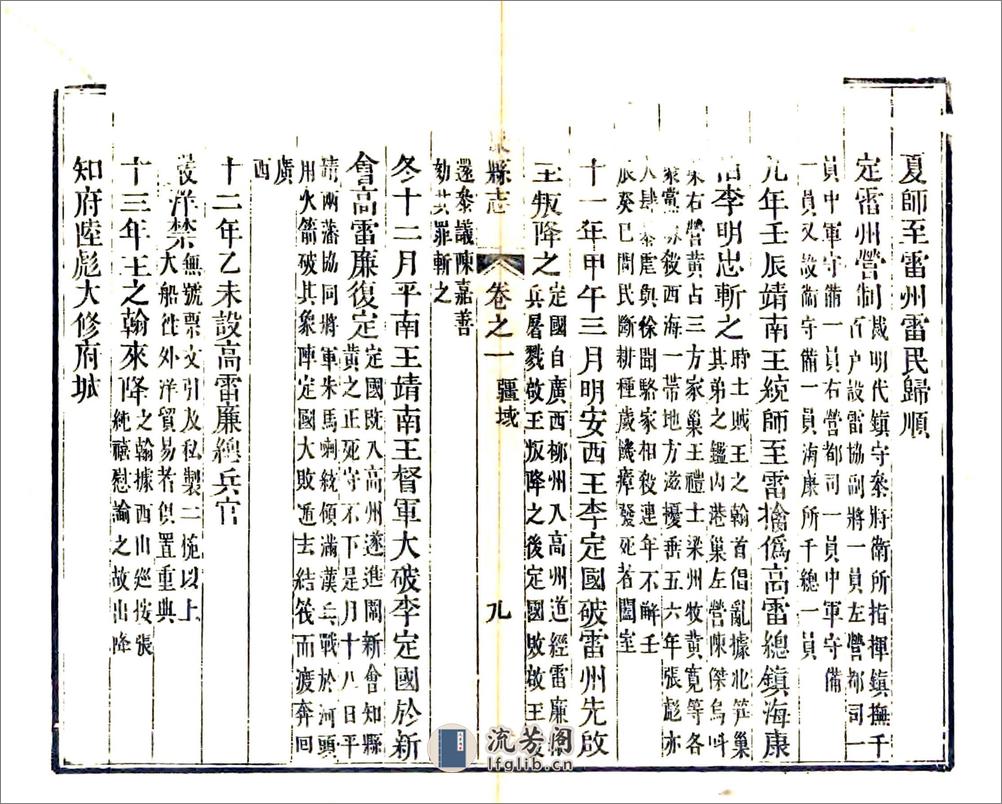 夏師至雷州雷民歸順
定雷州營制裁明代鎮守叅將衛所指揮鎮撫千
百户設雷協副將一員左營都司一
員中軍守備一員右營都司一員中軍守備
一員又設衞守備一員海康所千總一員
九年壬辰靖南王統師至雷擒僞高雷總鎮海康
伯李明忠斬之時土賊王之翰首倡亂據北笋巢
其弟之鑑山港巢左營陳傑烏叫
巢右營黃占三方家巢王禮士梁州牧黃寬等各
聚黨 殺西海一帶地方滋擾垂五六年張彪亦
大肆 虐與徐聞駱家相殺連年不解壬
辰癸巳間民斷耕種歲饑瘴發死者闔室
十一年甲午三月明安西王李定國破雷州先啟
王叛降之定國自廣西柳州入高州道經雷廉
兵屠戮敬王叛降之後定國敗敬王
還叅議陳嘉善
劾其罪斬之
縣志
卷之一
疆域
九
冬十二月平南王靖南王督軍大破李定國於新
會高雷廉復定定國既入高州遂進圍新會知縣
黃之正死守不下是月十八日平
靖兩藩協同將軍朱馬喇統領滿漢兵戰於河頭
用火箭破其象陣定國大敗遁去結筏而渡奔回
廣
西
十二年乙未設高雷廉總兵官
嚴洋禁無號票文引及私製二桅以上
大船徃外洋貿易者俱置重典
十三年王之翰來降之翰據西山巡按張
純禧慰諭之故出降
知府陸彪大修府城
流芳阁
lfglib.cn